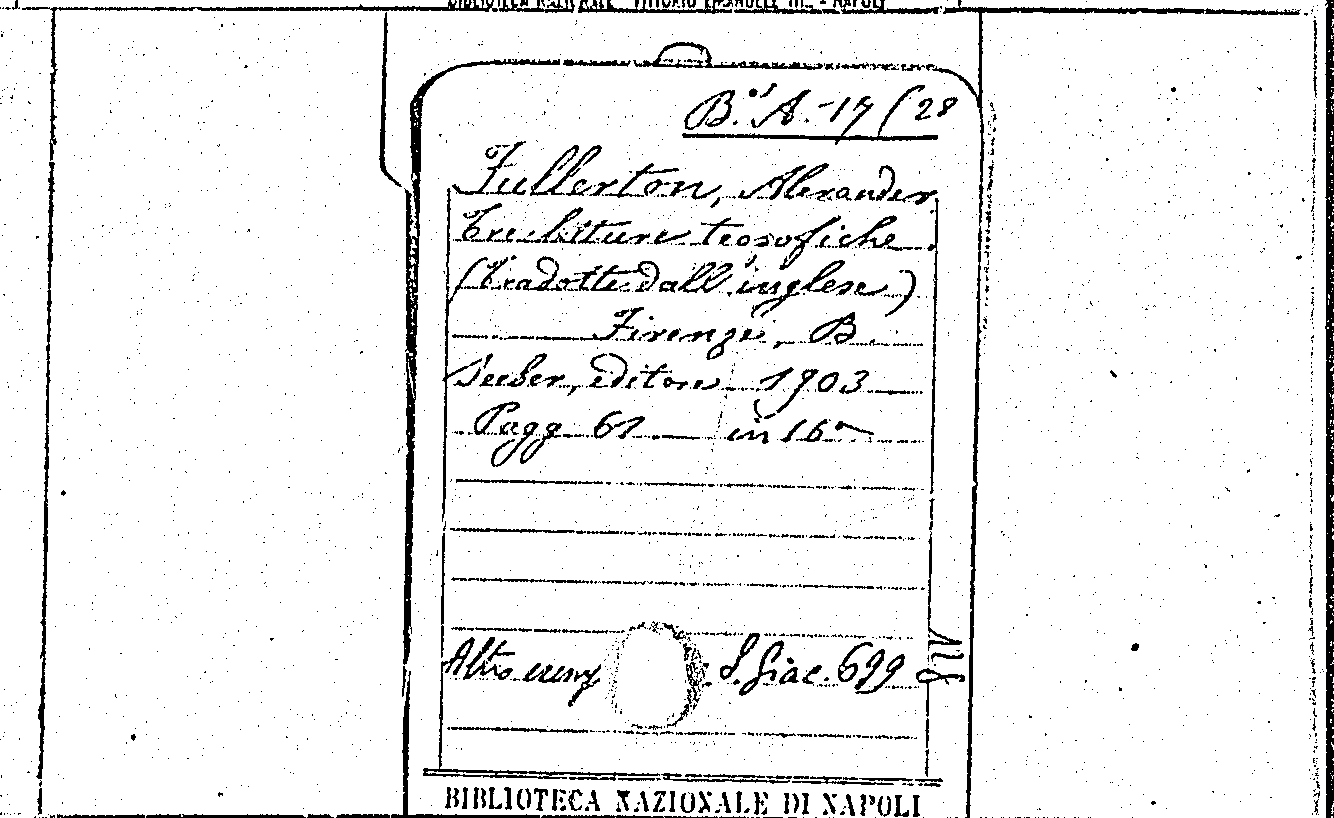 BIBLIOTECA NAZIONALE "VITTORIO EMANUELE III" - NAPOLI
B.ⁿᵉ A.-17 (28
Fullerton, Alexander
Tre letture teosofiche.
(Tradotte dall'inglese)
Firenze, B.
Seeber, editore 1903
Pagg 61 in 16°
Altro S. Giac. 699
BIBLIOTECA NAZIONALE DI NAPOLI